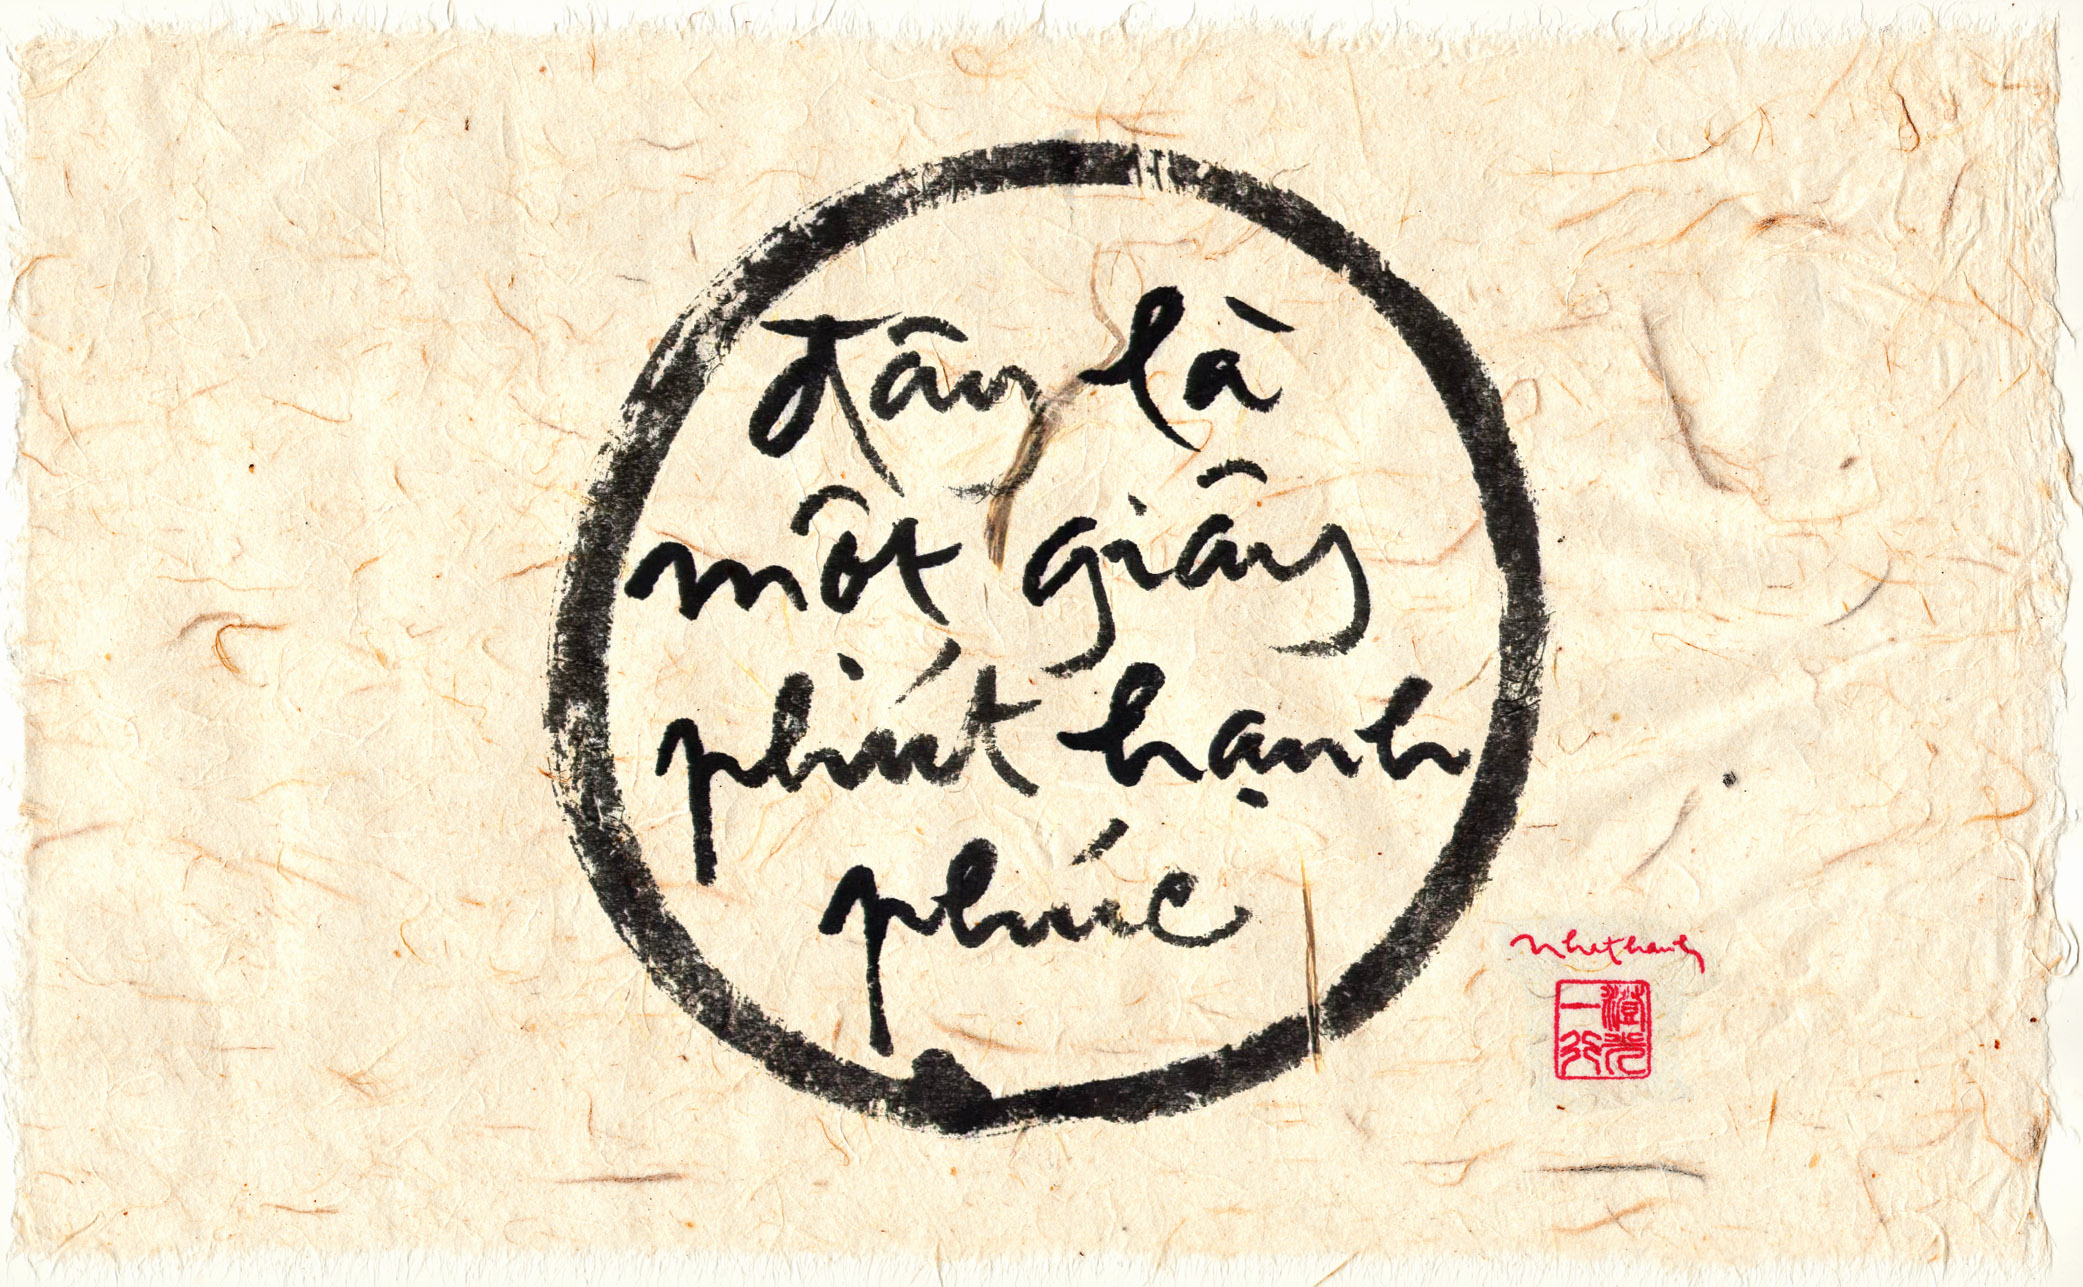 đây là
môt giây
phút hạnh
phúc
nhathanh
澄光
一行